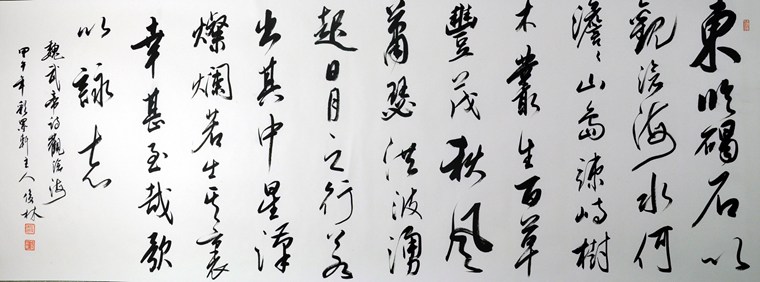 東臨碣石以
觀滄海水何
澹〻山島竦峙樹
木叢生百草
豐茂秋風
蕭瑟洪波湧
起日月之行若
出其中星漢
燦爛若出其裏
幸甚至哉歌
以詠志
魏武帝詩觀滄海
甲午年主人俊林